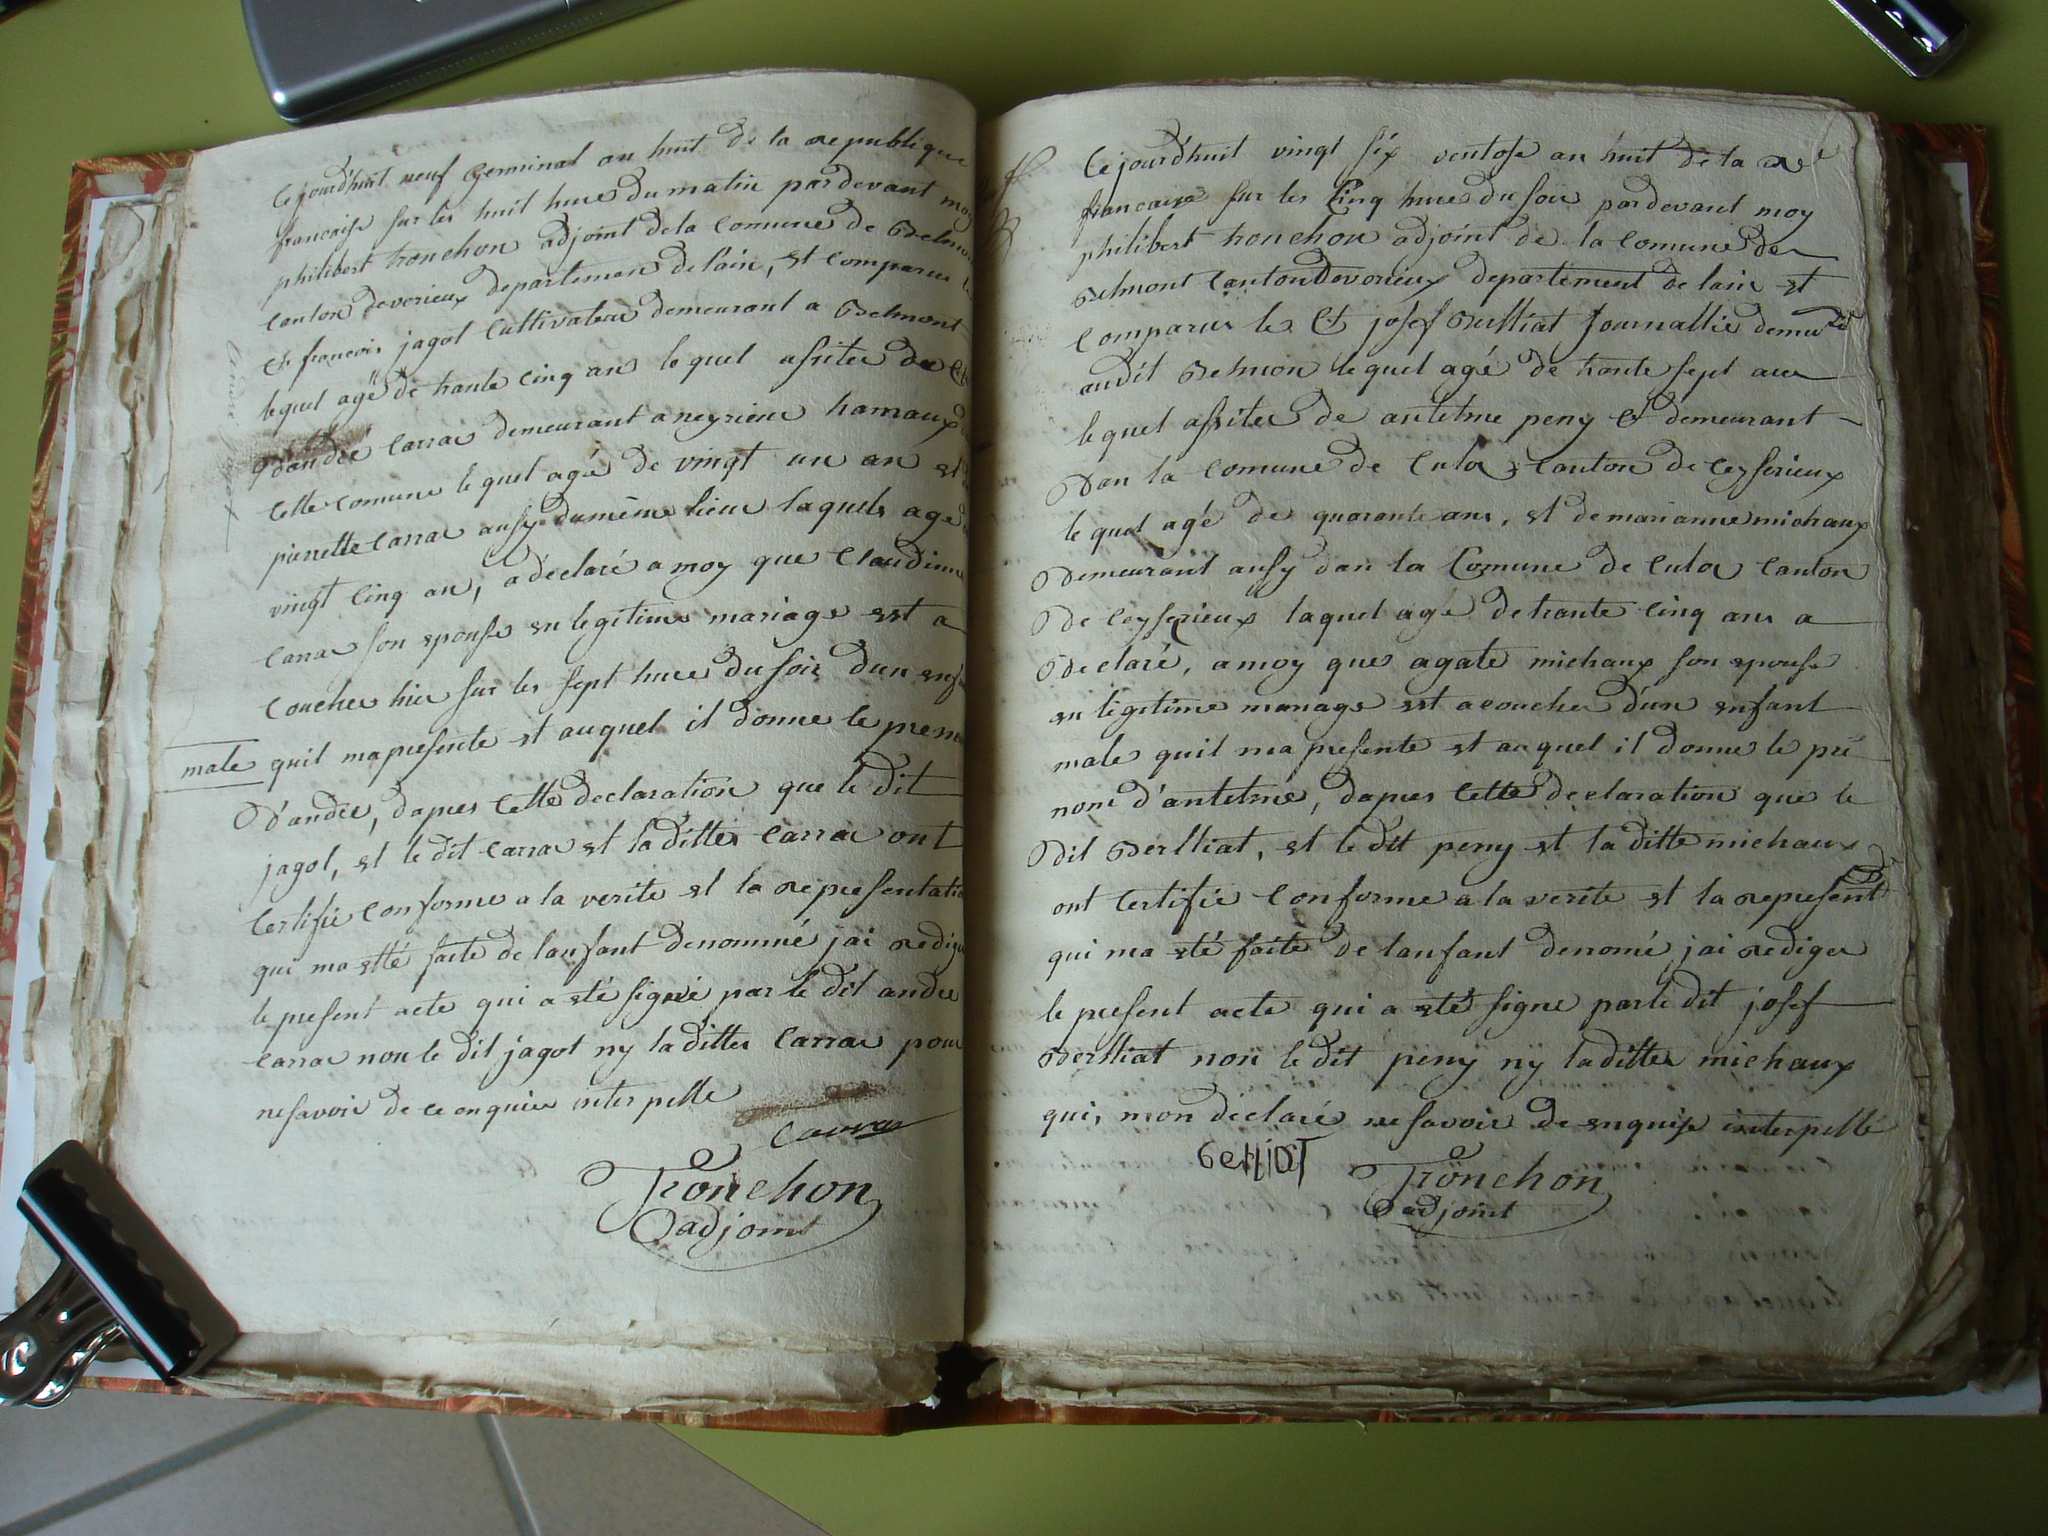 Cejourdhuit neuf Germinal an huit de la republique
francaise sur les huit hure du matin pardevant moy
philibert tronchon adjoint de la comune de Belmon
canton deverieux departeman de lain, et comparu le
Ct francois jagot Cultivateur demeurant a Belmont
lequel agé de trante cinq an lequel assiter de Ct
D'andré Carra demeurant a neyrieu hamaux
Cette comune lequel agé de vingt un an et
pierrette Carra ausy du même lieu laquele age
vingt cinq an, a déclaré a moy que Claudinne
Carra son epouse en legitime mariage est a
coucher hier sur les sept hure du soir dun enfan
male quil ma presente et auquel il donne le preno
D'andre, dapres Cette declaration que le dit
jagot, et le dit Carra et la ditte Carra ont
Certifié Conforme a la verite et la representatio
qui ma etté faite de lanfant denommé jai rediger
le present acte qui a eté signé par le dit andre
Carra non le dit jagot ny la ditte Carra pour
ne savoir de ce enquier interpelle
Carra
Tronchon
adjoint
Cejourdhuit vingt six ventose an huit de la Re
francaise sur les Cinq hure du soir pardevant moy
philibert tronchon adjoint de la Comune de
Belmont Canton Deverieux departement de lain et
Comparu le Ct josef Berlliat Journallié demeurt
audit Belmon lequel agé de trante sept an
lequel assiter de antelme peny Ct demeurant
Dan la Comune de Culoz Canton de Ceyserieux
lequel agé de quarante ans, et de marianne michaux
Demeurant ausy dan la Comune de Culoz Canton
De Ceyserieux laquel agé de trante Cinq ans a
Declaré, a moy que agate michaux son epouse
en legitime mariage est acoucher d'un enfant
male quil ma presente et auquel il donne le pré
nom d'antelme, dapres Cette declaration que le
Dit Berlliat, et le dit peny et la ditte michaux
ont Certifie Conforme a la verite et la represent
qui ma eté faite de lanfant denomé jai rediger
le present acte qui a eté signe par le dit josef
Berlliat non le dit peny ny la ditte michaux
qui, mon déclaré ne savoir de enquise interpellé
berliat
Tronchon
adjoint